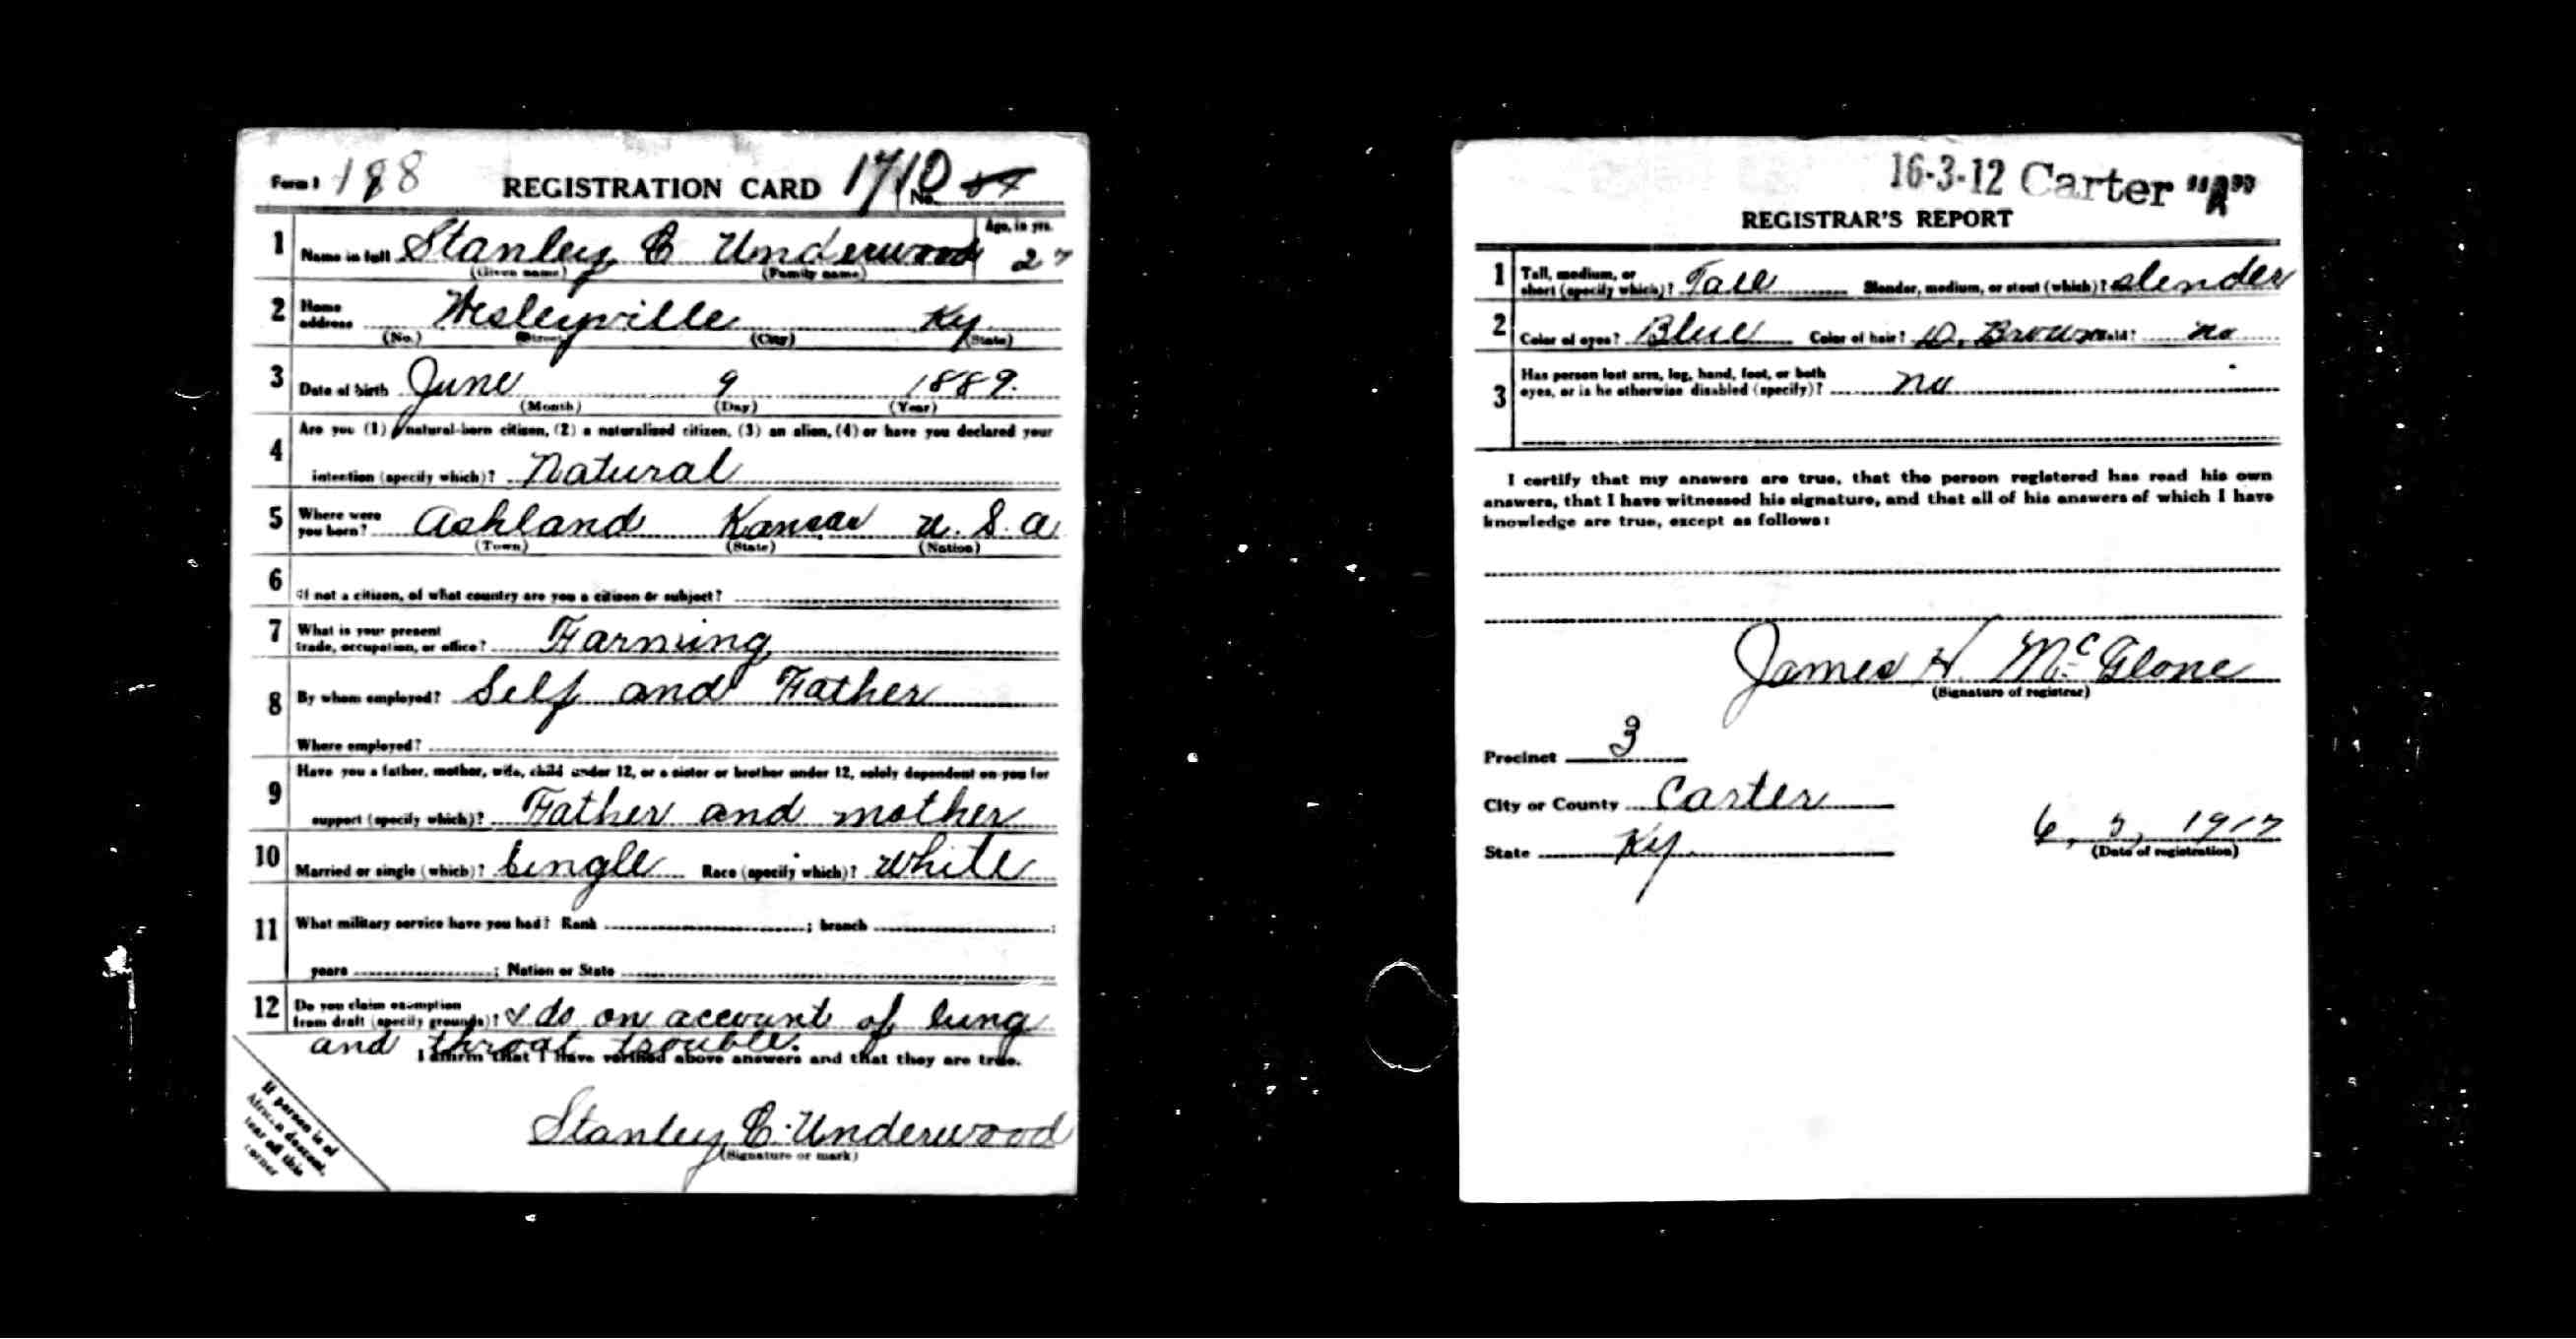 Form 1 188 REGISTRATION CARD 1710 No. 54
1 Name in full Stanley C Underwood Age, in yrs. 27
(Given name) (Family name)
2 Home address Wesleyville Ky
(No.) (Street) (City) (State)
3 Date of birth June 9 1889.
(Month) (Day) (Year)
4 Are you (1) a natural-born citizen, (2) a naturalized citizen, (3) an alien, (4) or have you declared your
intention (specify which)? Natural
5 Where were you born? Ashland Kansas U. S. A
(Town) (State) (Nation)
6 If not a citizen, of what country are you a citizen or subject?
7 What is your present trade, occupation, or office? Farming
8 By whom employed? Self and Father
Where employed?
9 Have you a father, mother, wife, child under 12, or a sister or brother under 12, solely dependent on you for
support (specify which)? Father and mother
10 Married or single (which)? Single Race (specify which)? White
11 What military service have you had? Rank ; branch ;
years ; Nation or State
12 Do you claim exemption from draft (specify grounds)? I do on account of lung
and throat trouble.
I affirm that I have verified above answers and that they are true.
Stanley C. Underwood
(Signature or mark)
If person is of
African descent,
tear off this
corner
16-3-12 Carter "A"
REGISTRAR'S REPORT
1 Tall, medium, or short (specify which)? Tall Slender, medium, or stout (which)? slender
2 Color of eyes? Blue Color of hair? D. Brown Bald? no
3 Has person lost arm, leg, hand, foot, or both
eyes, or is he otherwise disabled (specify)? no
I certify that my answers are true, that the person registered has read his own
answers, that I have witnessed his signature, and that all of his answers of which I have
knowledge are true, except as follows:
James H McGlone
(Signature of registrar)
Precinct 3
City or County Carter
State Ky. 6, 5, 1917
(Date of registration)